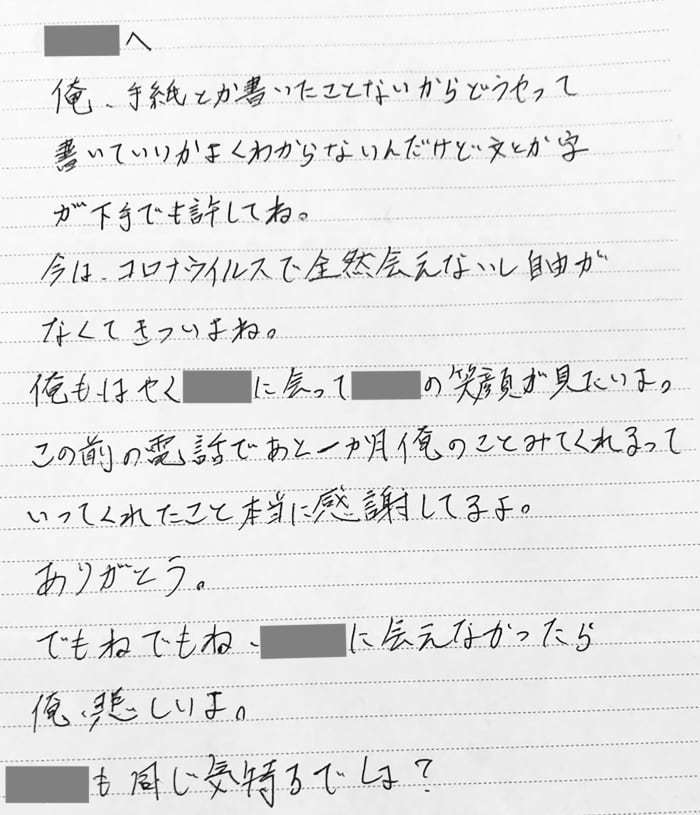 へ
俺、手紙とか書いたことないからどうやって
書いていいかよくわからないんだけど文とか字
が下手でも許してね。
今は、コロナウイルスで全然会えないし自由が
なくてきついよね。
俺もはやく に会って の笑顔が見たいよ。
この前の電話であと一か月俺のことみてくれるって
いってくれたこと本当に感謝してるよ。
ありがとう。
でもねでもね、 に会えなかったら
俺、悲しいよ。
も同じ気持ちでしょ?